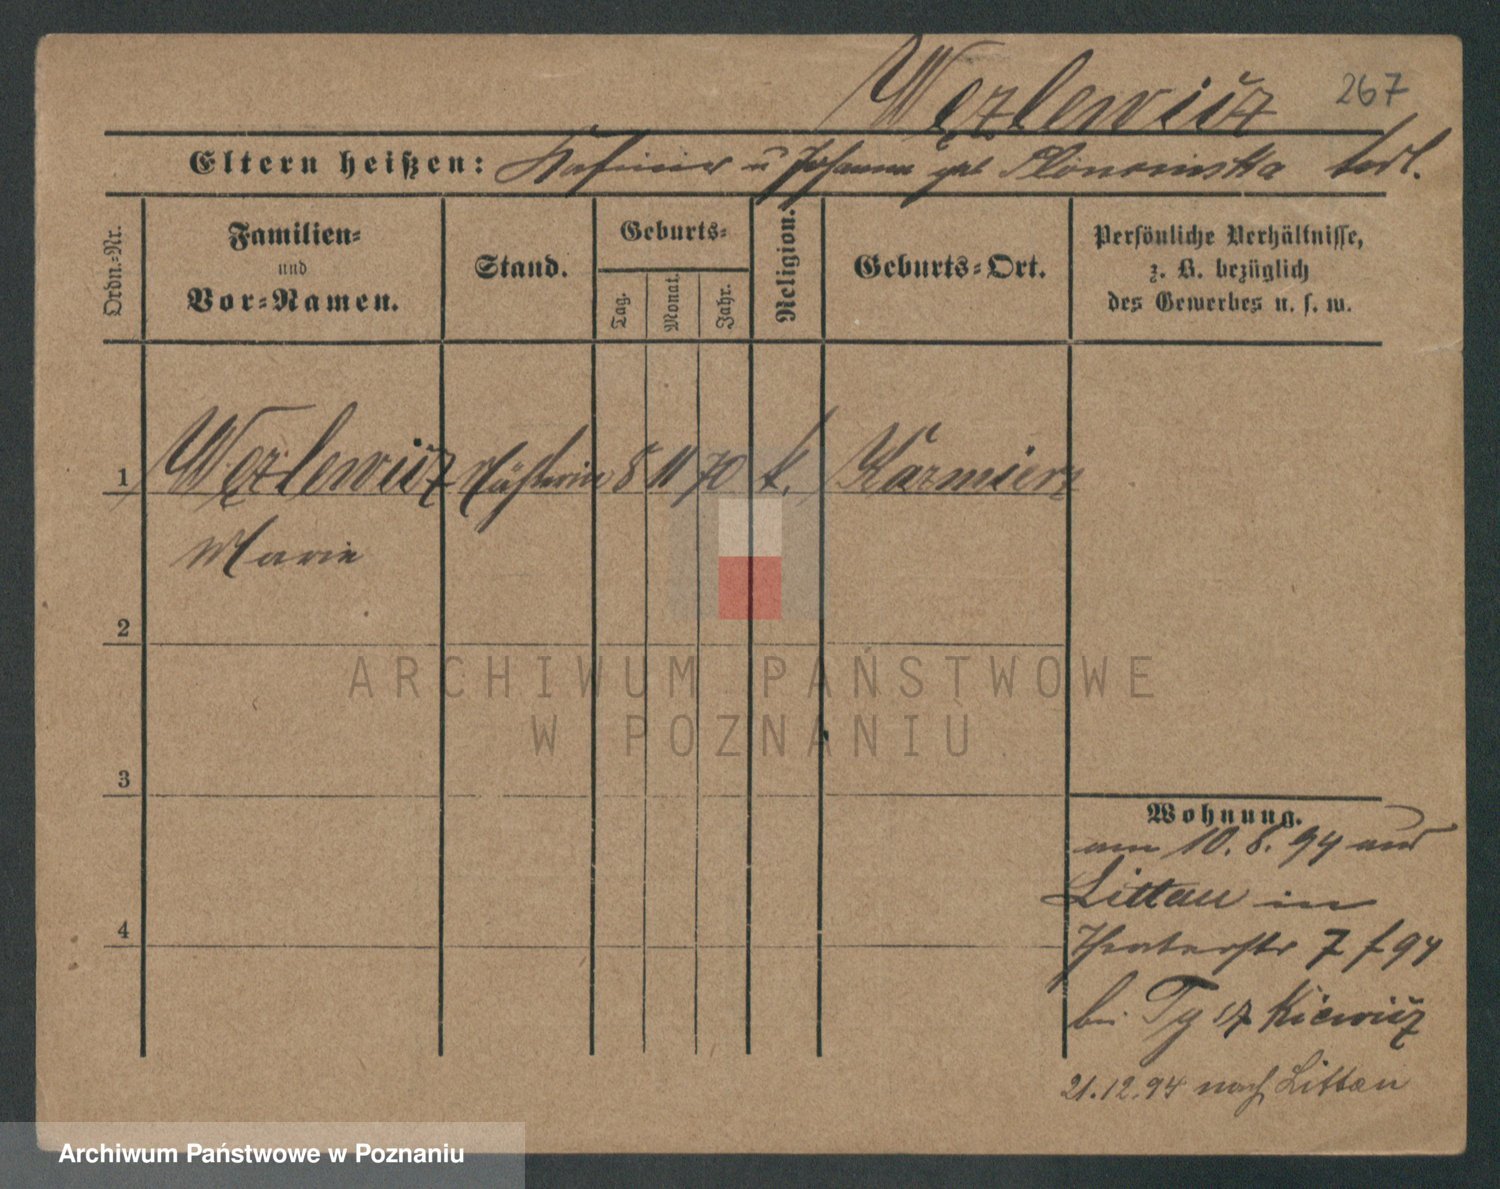 Węzlewicz 267
Eltern heißen: Kasimir u Johanna geb Slonominska kath.
Ordn.-Nr.
Familien-
und
Vor-Namen.
Stand.
Geburts-
Tag. Monat. Jahr.
Religion.
Geburts-Ort.
Persönliche Verhältnisse,
z. B. bezüglich
des Gewerbes u. s. w.
1 Węzlewicz 8 11 70 k. Kazmierz
Marie
2
3
4
Wohnung.
am 10. 8. 94 aus
Littau in
Theaterstr 7 f 94
bei
21.12.94 nach Littau
ARCHIWUM PAŃSTWOWE
W POZNANIU
Archiwum Państwowe w Poznaniu